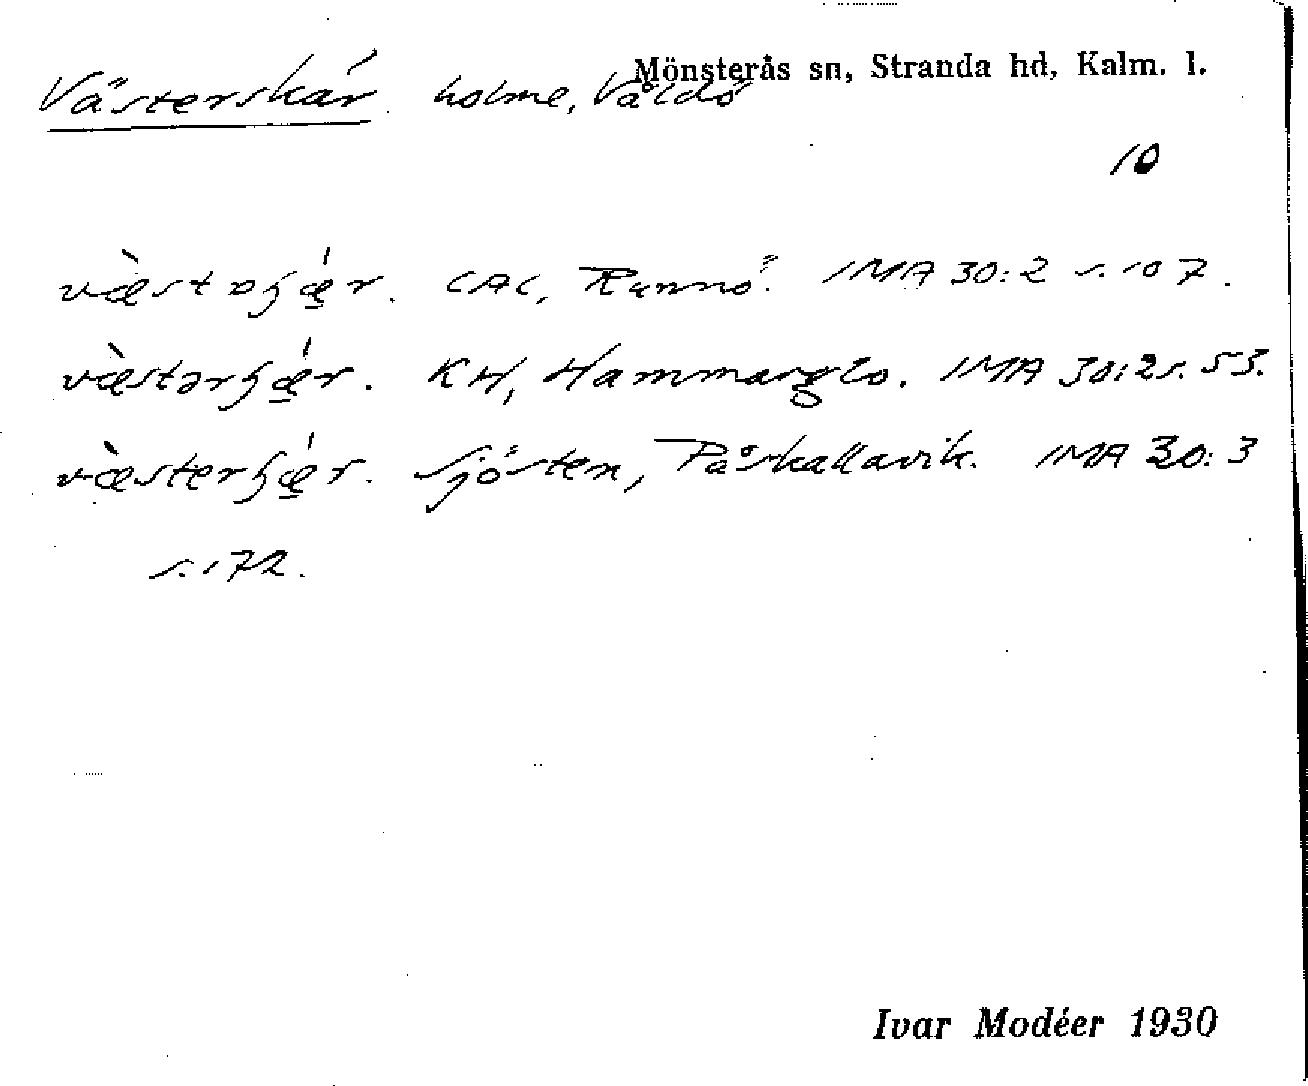 Mönsterås sn, Stranda hd, Kalm. l.
Västerskär. holme, Våldö
10
væ̀stɒʃǽ̲r. CAC, Runnö. IMA 30:2 s. 107.
væ̀stərʃǽ̲r. KH, Hammarglo. IMA 30:2 s. 53.
væ̀sterʃǽ̲r. Sjösten, Påskallavik. IMA 30:3
s. 172.
Ivar Modéer 1930